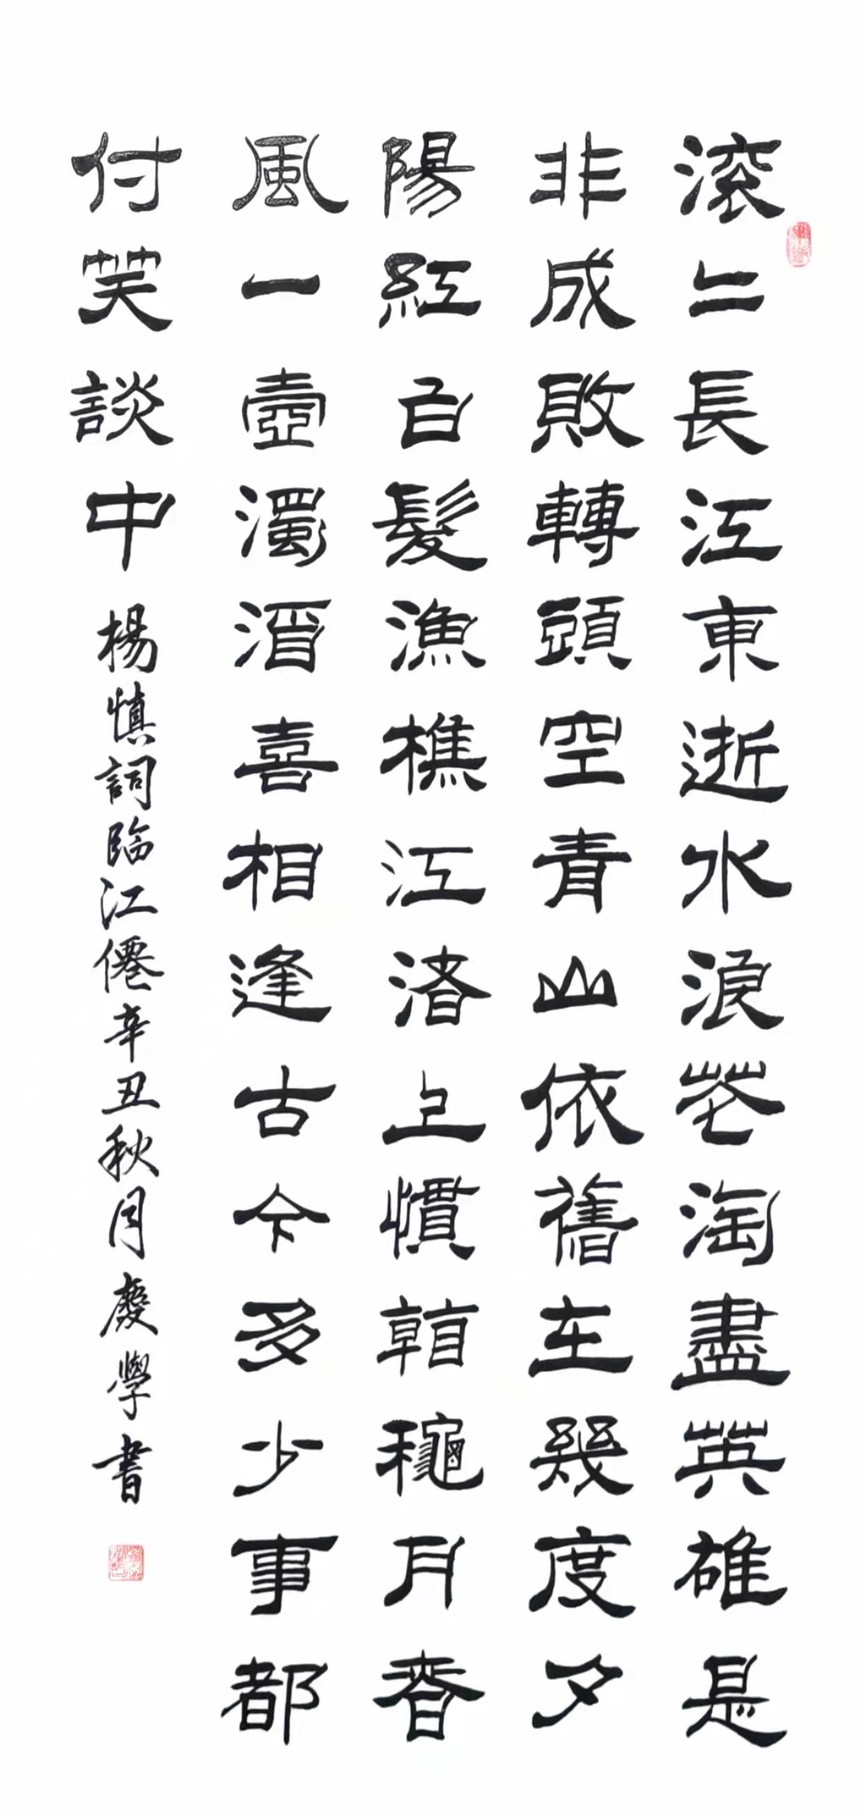 滚二長江東逝水浪花淘盡英雄是
非成敗轉頭空青山依舊在幾度夕
陽紅白髮漁樵江渚上慣看龝月春
風一壺濁酒喜相逢古今多少事都
付笑談中 楊慎詞臨江僊辛丑秋月慶學書